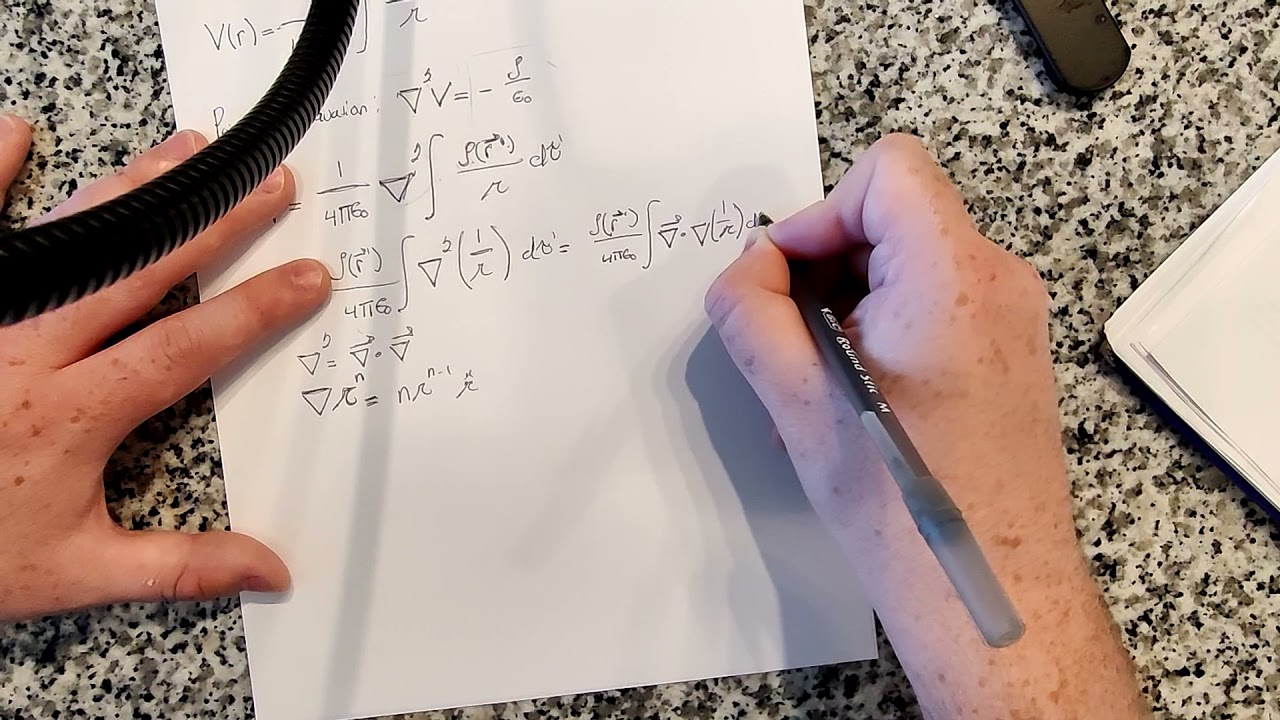 V(r)=
∇²V = - ρ/ε₀
= 1/4πε₀ ∇² ∫ ρ(r⃗')/r dτ'
ρ(r⃗')/4πε₀ ∫ ∇² (1/r) dτ' = ρ(r⃗')/4πε₀ ∫ ∇⃗ · ∇(1/r) d
∇² = ∇⃗ · ∇⃗
∇rⁿ = nrⁿ⁻¹ r̂
BIC Round Stic M